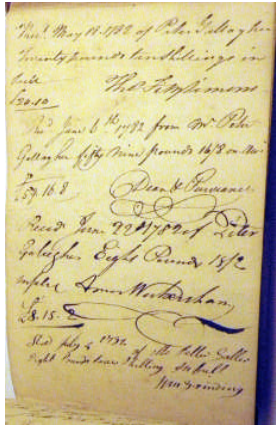 Recd May 18. 1782 of Peter Gallagher
Twenty pounds ten shillings in
full
Tho. Fitzsimons
£20.10
Recd June 6th 1782 from Mr. Peter
Gallagher fifty Nine pounds 16/8 on
£59.16.8
Dean & Purviance
Recd June 22d 1782 of Peter
Gallagher Eight Pounds 15/2
in full
Amos Wickersham
£8.15.2
Recd July 1782 of Mr Peter Galler
Eight Pounds Shilling in full